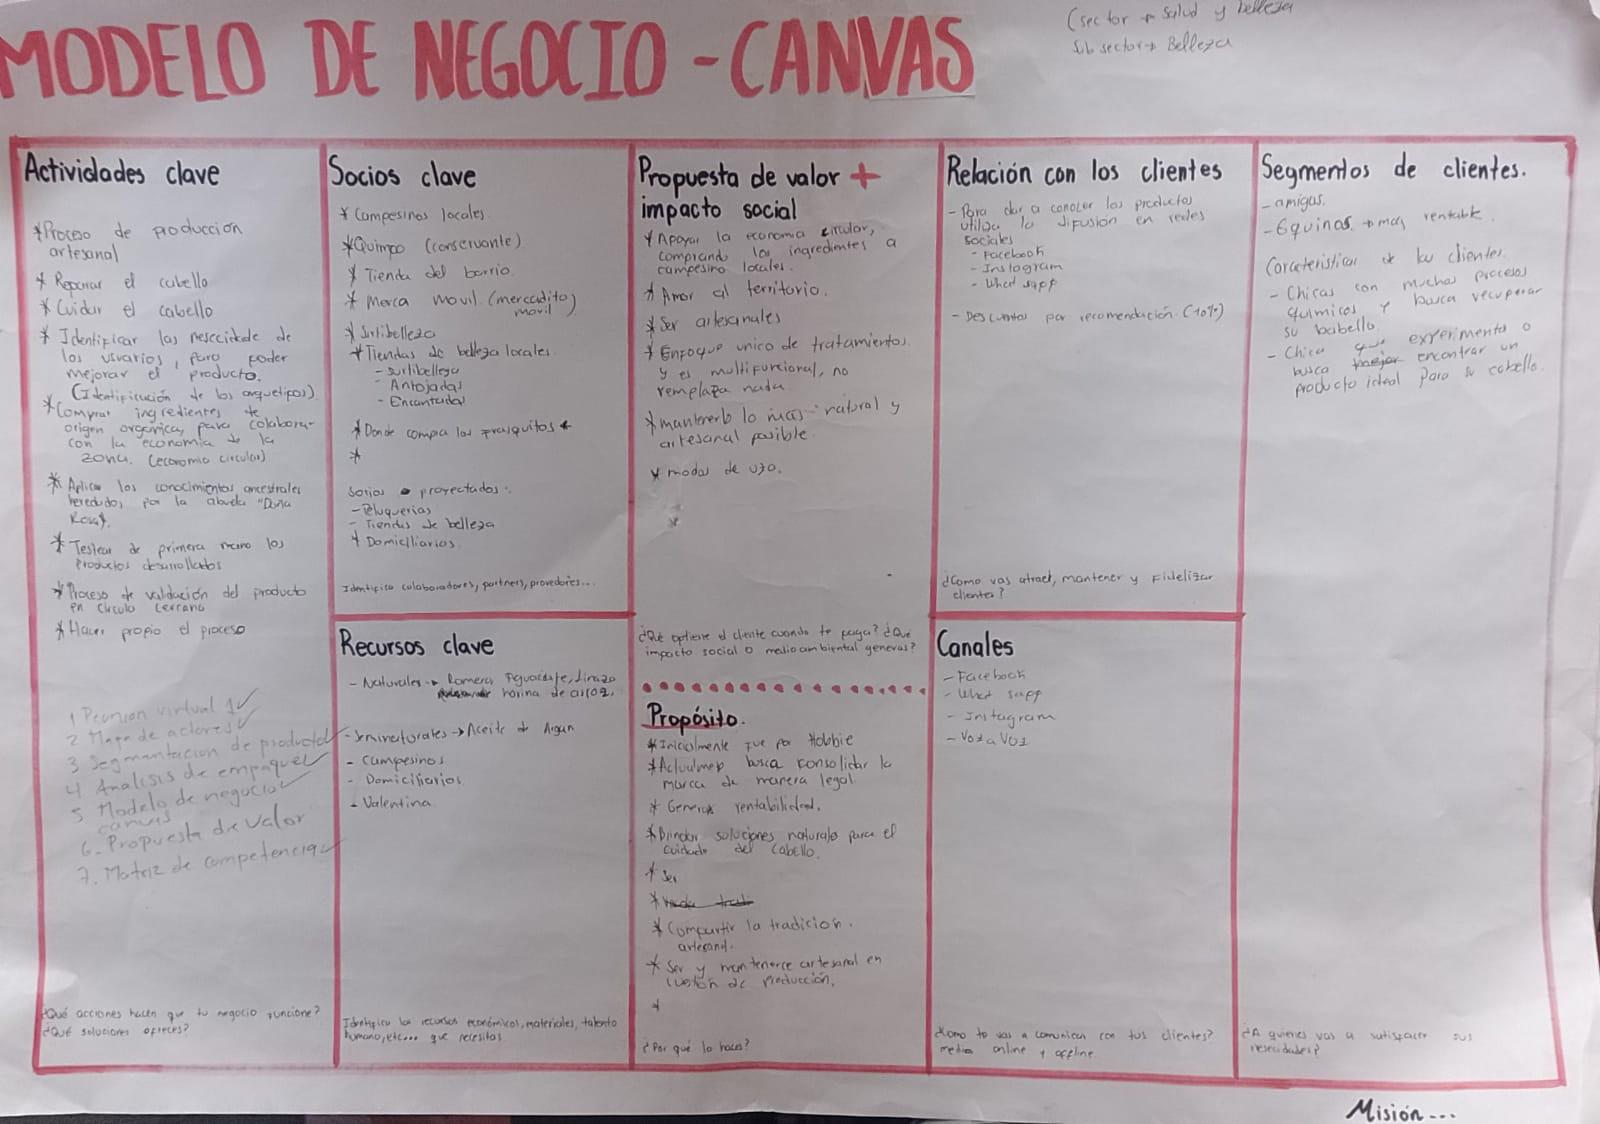 MODELO DE NEGOCIO - CANVAS
(sector → Salud y belleza
Sub sector → Belleza
Actividades clave
* Proceso de producción
artesanal
* Reparar el cabello
* Cuidar el cabello
* Identificar las nesecidade de
los usuarios, para poder
mejorar el producto.
(Identificición de los arquetipos)
* Comprar ingredientes de
origen organica, para colabora-
con la economia de la
zona. (economia circular)
* Aplicar los conocimientos ancestrales
heredados por la abuela "Doña
Rosa".
* Testear de primera mano los
productos desarrollados
* Proceso de validación del producto
en circulo cercano
* Hacer propio el proceso
1 Reunion virtual 1 ✓
2 Mapa de actores ✓
3 Segmantacion de producto ✓
4 Analisis de empaque ✓
5 Modelo de negocio ✓
canvas
6. Propuesta de valor
7. Matriz de competencia ✓
¿Qué acciones hacen que tu negocio funcione?
¿Qué soluciones ofreces?
Socios clave
* Campesinos locales.
* Quimpo (conservante)
* Tienda del barrio.
* Merca movil (mercadito)
movil
* Surlibelleza
* Tiendas de belleza locales.
- Surlibelleza
- Antojadas
- Encantadas
* Donde compra los frasquitos
*
Socios proyectados:
- Peluquerias
- Tiendas de belleza
* Domicilliarios.
Identifica colaboradores, partners, provedores...
Recursos clave
- Naturales → Romero, Aguacate, linaza
harina de arroz.
- Seminaturales → Aceite de Argan
- Campesinos
- Domiciliarios
- Valentina
Identifica los recursos económicos, materiales, talento
humano, etc... que necesitas
Propuesta de valor +
impacto social
* Apoyar la economia circular,
comprando los ingredientes a
campesino locales.
* Amor al territorio.
* Ser artesanales
* Enfoque unico de tratamientos.
y es multifuncional, no
remplaza nada
* mantenerlo lo mas natural y
artesanal posible.
* modos de uzo.
*
¿Qué optiene el cliente cuando te paga? ¿Qué
impacto social o medioambiental generas?
Propósito.
* Inicialmente fue por Hobbie
* Actualmen busca konsolidar la
marca de manera legal
* Generar rentabilidad.
* Brindar soluciones naturale para el
cuidado del cabello.
* Ser
* Compartir la tradición.
artesanal.
* Ser y mantenerce artesanal en
cuestión de producción.
*
¿Por qué lo haces?
Relación con los clientes
- Para dar a conocer los productos
utiliza la difusión en redes
sociales
- Facebook
- Instagram
- What sapp
- Descuentos por recomendación. (10%)
¿Como vas atraer, mantener y Fidelizar
clientes?
Canales
- Facebook
- What sapp
- Instagram
- Voz a Voz
¿Como te vas a comunicar con tus clientes?
medios online y offline.
Segmentos de clientes.
- amigas.
- Equinos → mas rentable.
Caracteristicas de las clientes.
- Chicas con muchos procesos
químicos y busca recuperar
su babello.
- Chica que experimenta o
busca encontrar un
producto ideal para su cabello.
¿A quienes vas a satisfacer sus
nesecidades?
Misión...